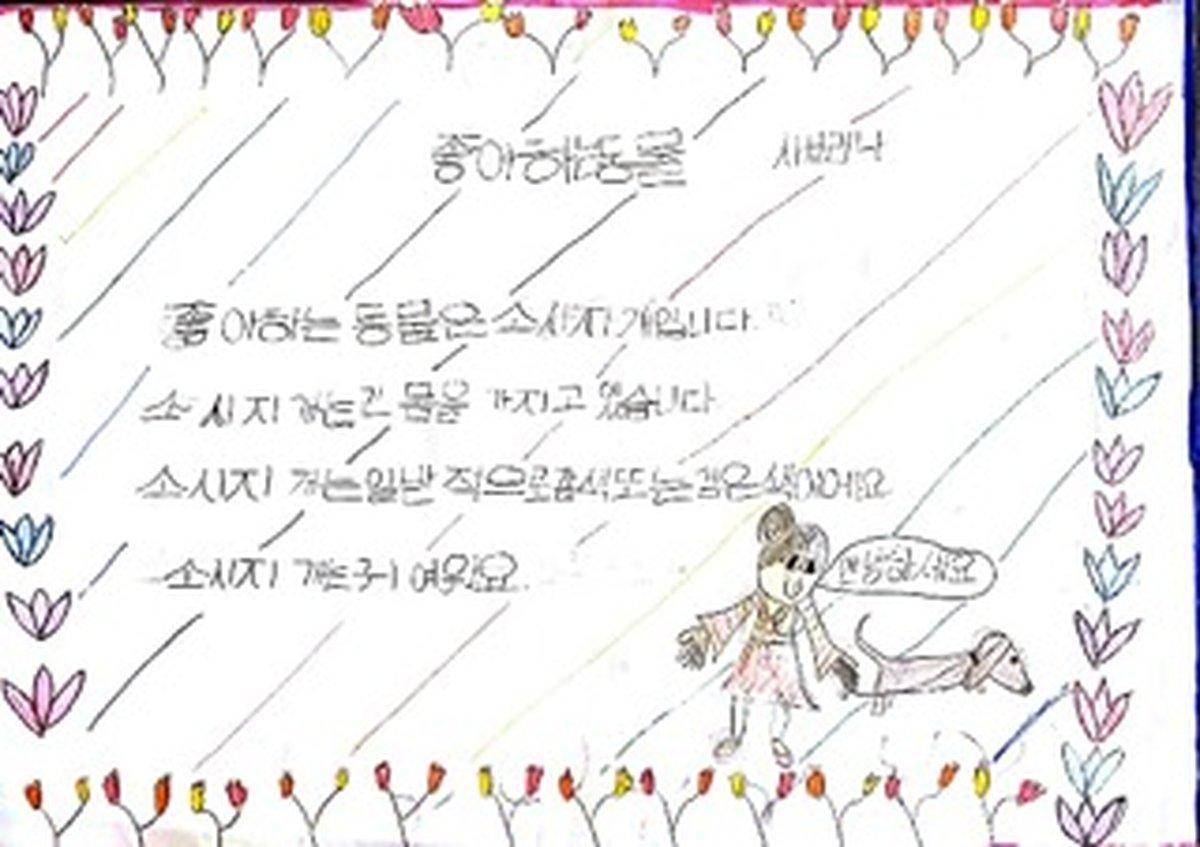 좋아하는동물 사브리나
좋아하는 동물은 소시지 개입니다.
소시지 개는 긴 몸을 가지고 있습니다
소시지 개는 일반적으로 갈색 또는 검은색이에요
소시지 개는 귀여워요.
안녕하세요